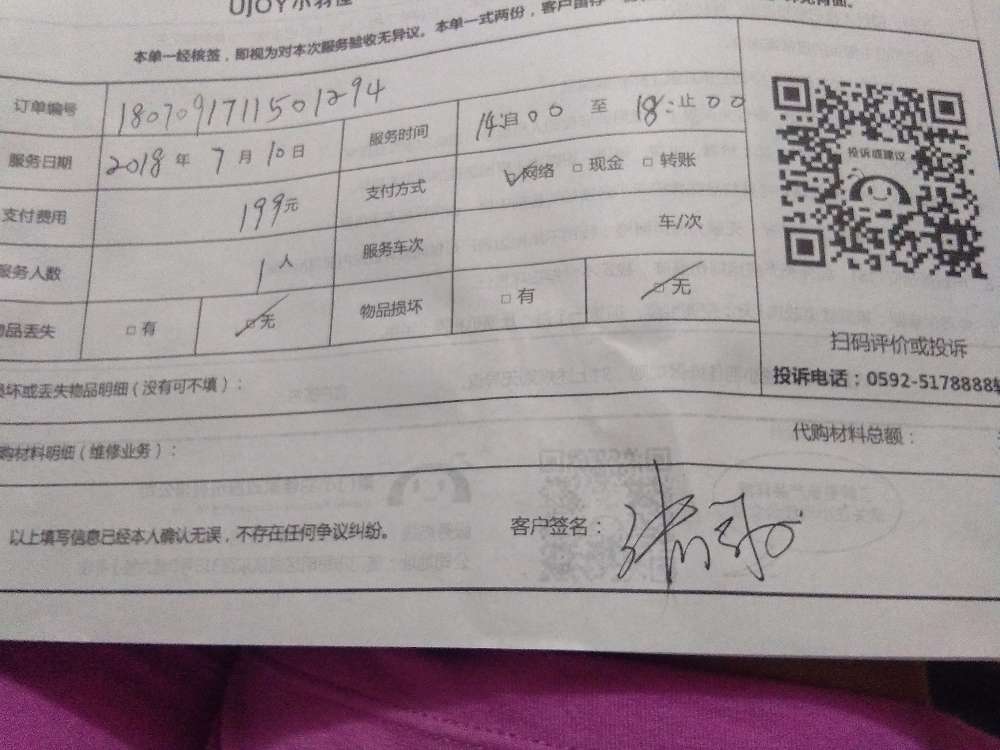 UJOY小羽佳
本单一经核签，即视为对本次服务验收无异议。本单一式两份，客户留存一
订单编号 180709171150 1294
服务日期 2018 年 7 月 10 日 服务时间 14:自 00 至 18:止 00
支付费用 199元 支付方式 ☑网络 □ 现金 □ 转账
服务人数 1 人 服务车次 车/次
物品丢失 □ 有 ☑无 物品损坏 □ 有 ☑无
投诉或建议
扫码评价或投诉
投诉电话：0592-5178888转
损坏或丢失物品明细（没有可不填）：
代购材料明细（维修业务）： 代购材料总额：
以上填写信息已经本人确认无误，不存在任何争议纠纷。 客户签名：